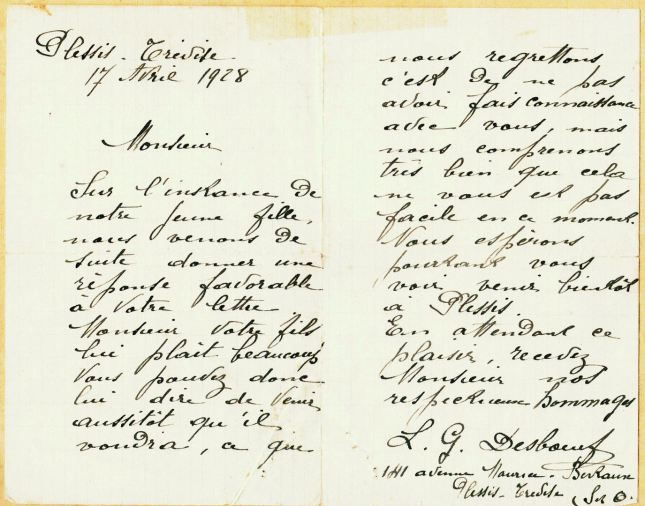 Plessis-Trévise
17 Avril 1928
Monsieur
Sur l'instance de
notre jeune fille,
nous venons de
suite donner une
réponse favorable
à votre lettre
Monsieur votre fils
lui plaît beaucoup
Vous pouvez donc
lui dire de venir
aussitôt qu'il
voudra, ce que
nous regrettons
c'est de ne pas
avoir fais connaissance
avec vous, mais
nous comprenons
très bien que cela
ne vous est pas
facile en ce moment.
Nous espérons
pourtant vous
voir venir bientôt
à Plessis
En attendant ce
plaisir, recevez
Monsieur nos
respectueux hommages
L. G. Desboeuf
141 avenue Maurice-Berteaux
Plessis-Trévise (S et O.